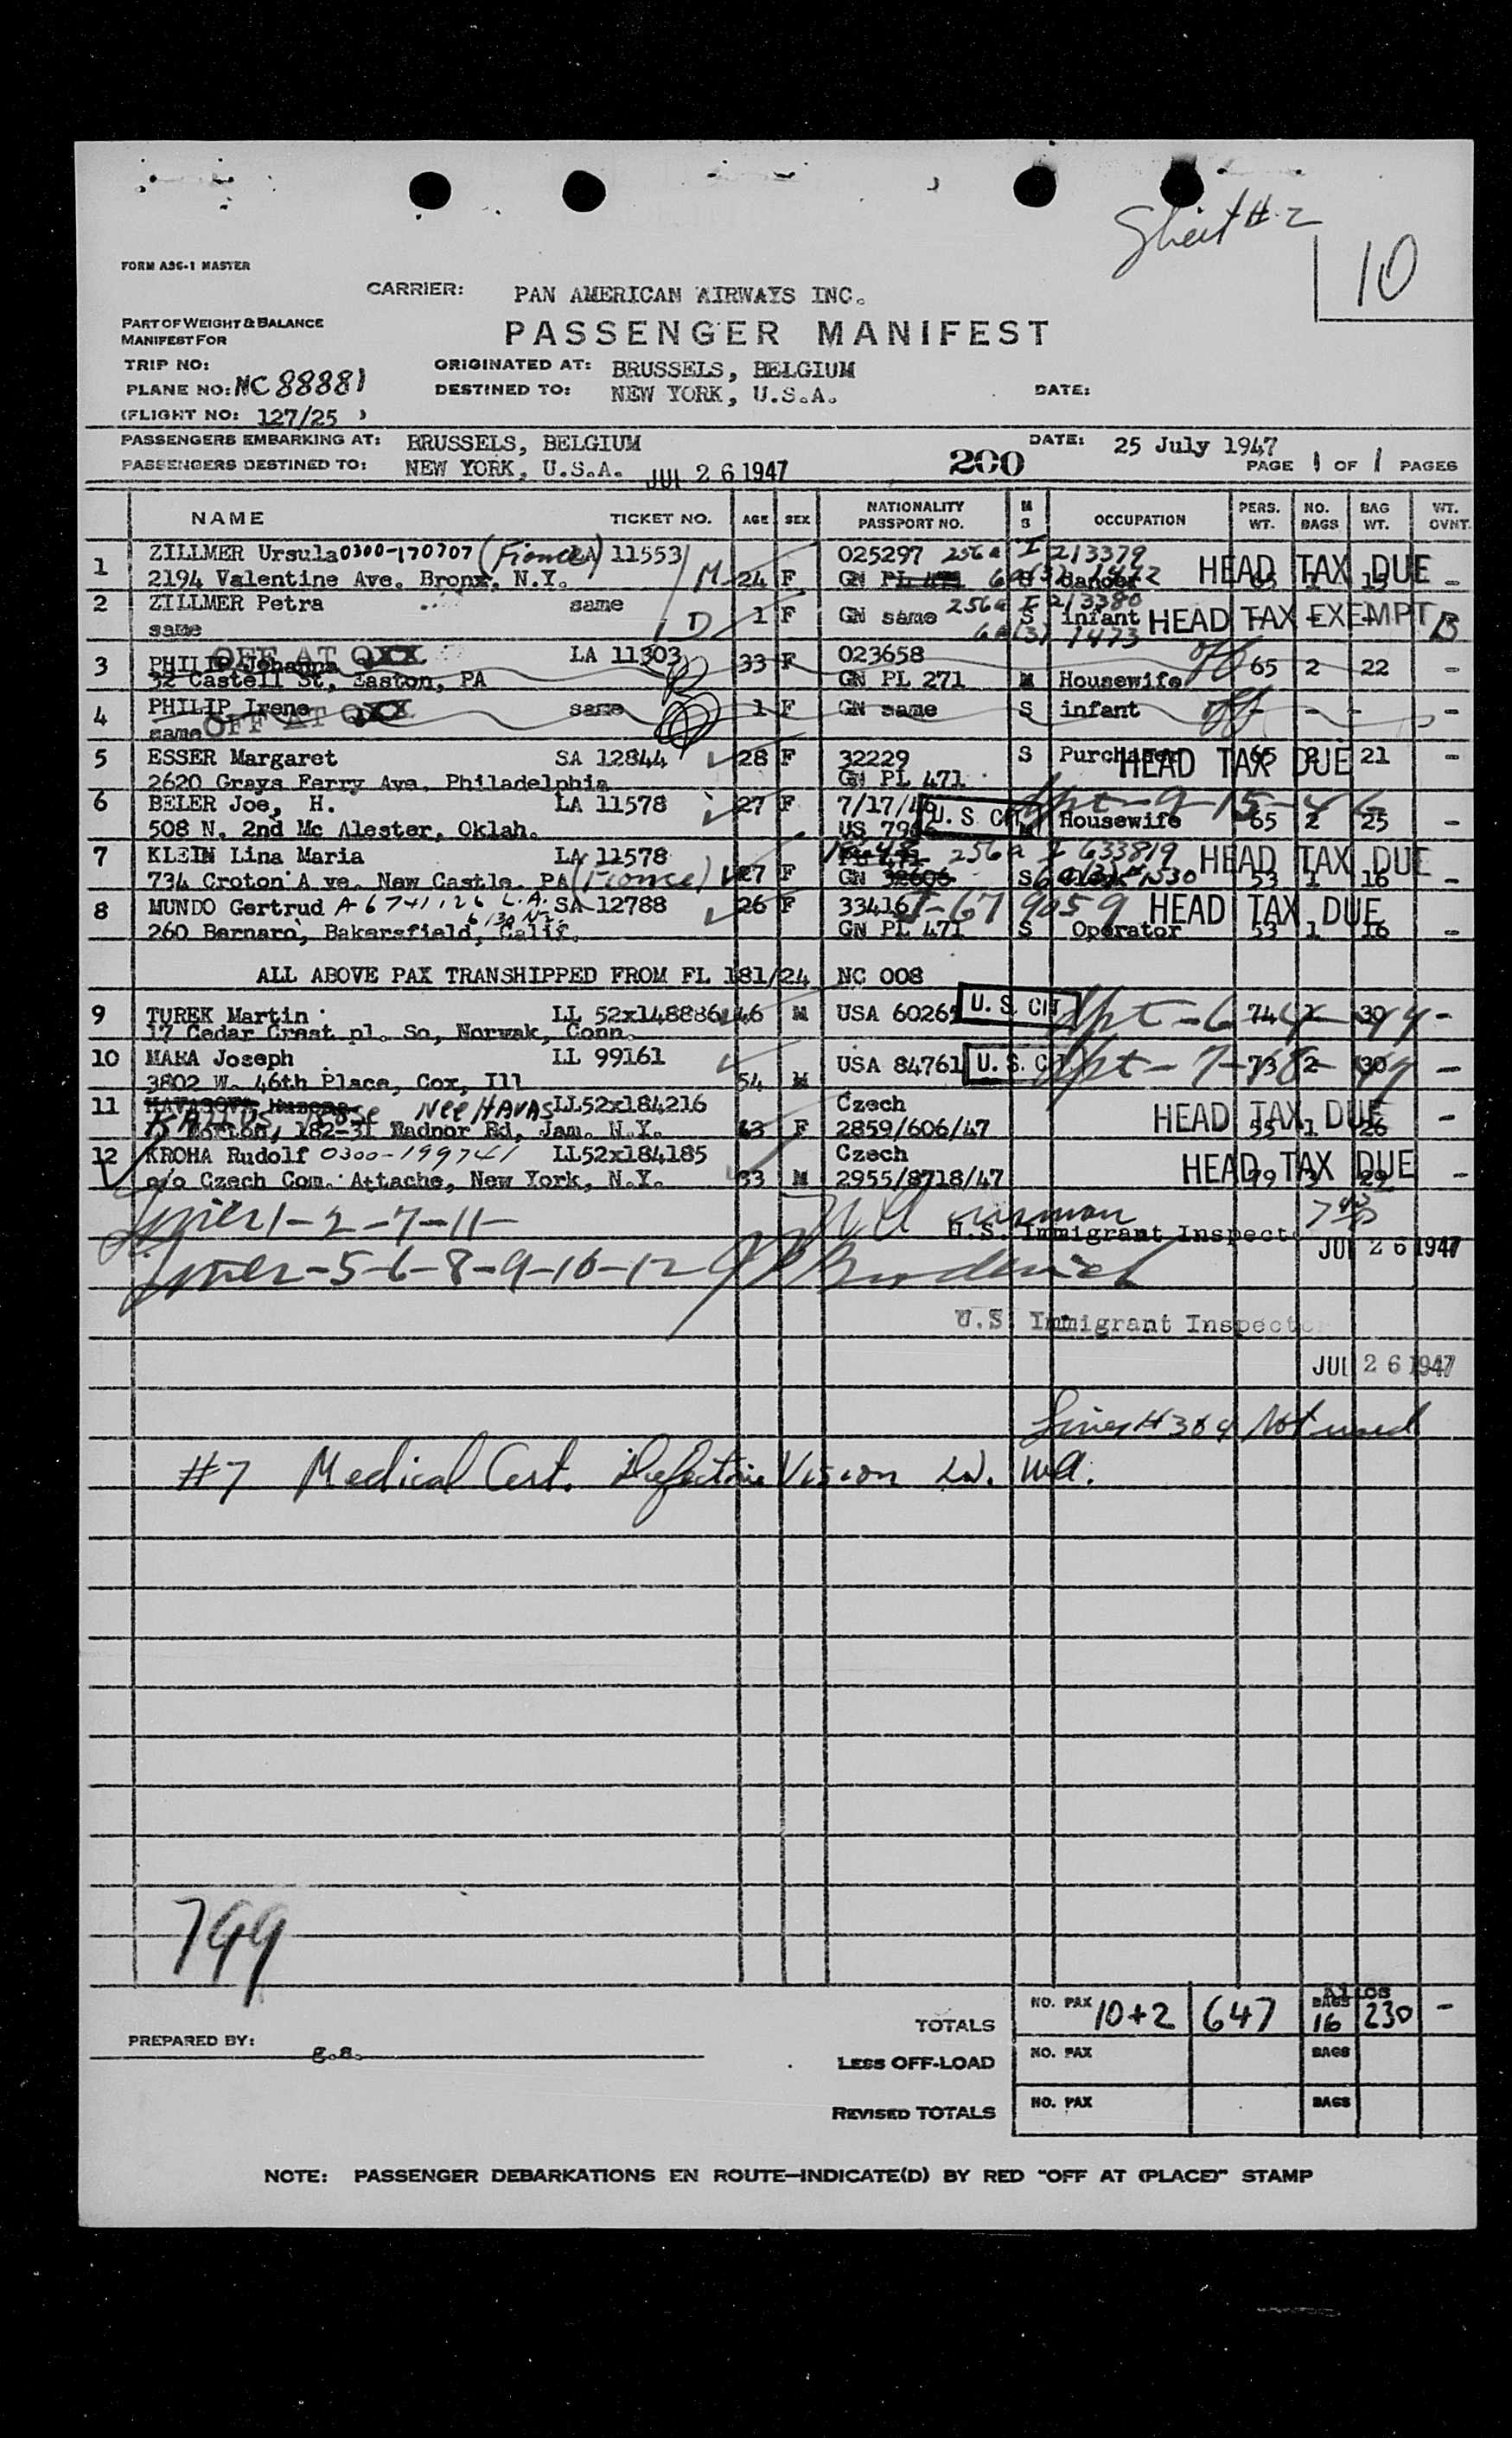 Sheet # 2
10
FORM A36-1 MASTER
CARRIER: PAN AMERICAN AIRWAYS INC.
PART OF WEIGHT & BALANCE
MANIFEST FOR
PASSENGER MANIFEST
TRIP NO:
ORIGINATED AT: BRUSSELS, BELGIUM
PLANE NO: NC 88881
DESTINED TO: NEW YORK, U.S.A. DATE:
(FLIGHT NO: 127/25 )
PASSENGERS EMBARKING AT: BRUSSELS, BELGIUM DATE: 25 July 1947
PASSENGERS DESTINED TO: NEW YORK, U.S.A. JUL 26 1947 200 PAGE 1 OF 1 PAGES
NAME TICKET NO. AGE SEX NATIONALITY PASSPORT NO. M S OCCUPATION PERS. WT. NO. BAGS BAG WT. WT. OVNT.
1 ZILLMER Ursula 0300-170707 (Fiancee) LA 11553 025297 256a I 213379
2194 Valentine Ave. Bronx, N.Y. M 24 F GN PL 471 S dancer HEAD TAX DUE 65 1 15 -
2 ZILLMER Petra same 1 F GN same 256a I 213380
same D 6a(3) 1473 S infant HEAD TAX EXEMPT B
3 PHILIP Johanna OFF AT QXX LA 11303 33 F 023658 off
32 Castell St, Easton, PA GN PL 271 M Housewife 65 2 22 -
4 PHILIP Irene OFF AT QXX same 1 F GN same S infant off - - - -
same
5 ESSER Margaret SA 12844 28 F 32229 S HEAD TAX DUE 65 2 21 -
2620 Grays Ferry Ave. Philadelphia GN PL 471
6 BELER Joe, H. LA 11578 27 F 7/17/46 U. S. CIT. Dpt-9-15-46
508 N. 2nd Mc Alester, Oklah. US M Housewife 65 2 25
7 KLEIN Lina Maria LA 11578 PL 471 256a I 633819 HEAD TAX DUE
734 Croton A ve. New Castle. PA (Fiance) 27 F GN 32606 S 6a(3) 1530 53 1 16 -
8 MUNDO Gertrud A 6741126 L.A. SA 12788 26 F 33416 I-679059 HEAD TAX DUE
260 Bernaro, Bakersfield, Calif. 6/30 GN PL 471 S Operator 53 1 16 -
ALL ABOVE PAX TRANSHIPPED FROM FL 181/24 NC 008
9 TUREK Martin LL 52x148886 46 M USA 60265 U. S. CIT. Dpt-6 74 30 -
17 Cedar Crest pl. So, Norwak, Conn.
10 MARA Joseph LL 99161 USA 84761 U. S. CIT. Dpt-7 73 2 30 -
3802 W. 46th Place, Cox, Ill 54 M
11 Nee HAVAS LL52x184216 Czech HEAD TAX DUE
182-31 Radnor Rd, Jam. N.Y. 63 F 2859/606/47 55 1 26 -
12 KROHA Rudolf 0300-199741 LL52x184185 Czech HEAD TAX DUE
c/o Czech Com. Attache, New York, N.Y. 33 M 2955/8718/47 79 3 29 -
Lines 1-2-7-11-
U.S. Immigrant Inspect JUL 26 1947
Lines-5-6-8-9-10-12 Broderick
U.S. Immigrant Inspector
JUL 26 1947
Lines # 3 & 4 Not used
#7 Medical Cert. Defective Vision
799
TOTALS NO. PAX 10+2 647 BAGS 16 KILOS 230 -
PREPARED BY: g.s.
LESS OFF-LOAD NO. PAX BAGS
REVISED TOTALS NO. PAX BAGS
NOTE: PASSENGER DEBARKATIONS EN ROUTE—INDICATE(D) BY RED "OFF AT (PLACE)" STAMP